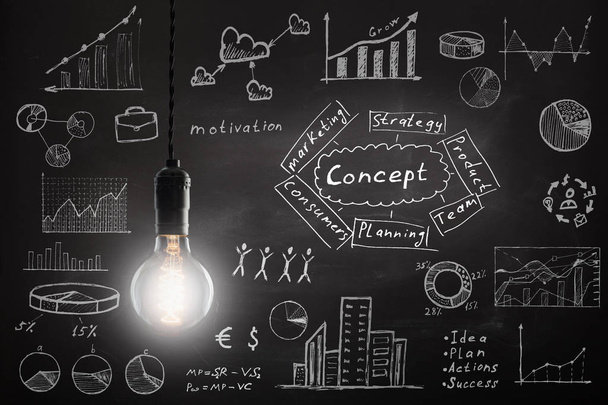 Grow
motivation
marketing
Strategy
Product
Concept
Consumers
Planning
Team
35%
22%
15%
28%
5%
15%
€ $
a
b
c
• Idea
• Plan
• Actions
• Success